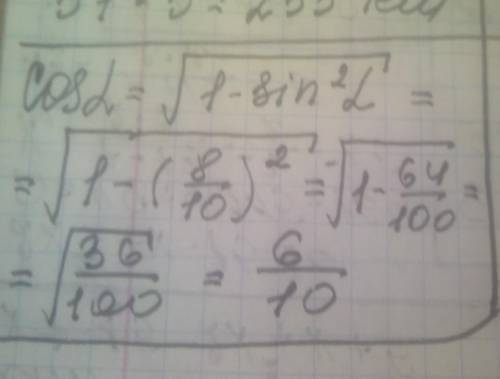 cos α = √(1 - sin²α) =
= √(1 - (8/10)²) = √(1 - 64/100) =
= √(36/100) = 6/10